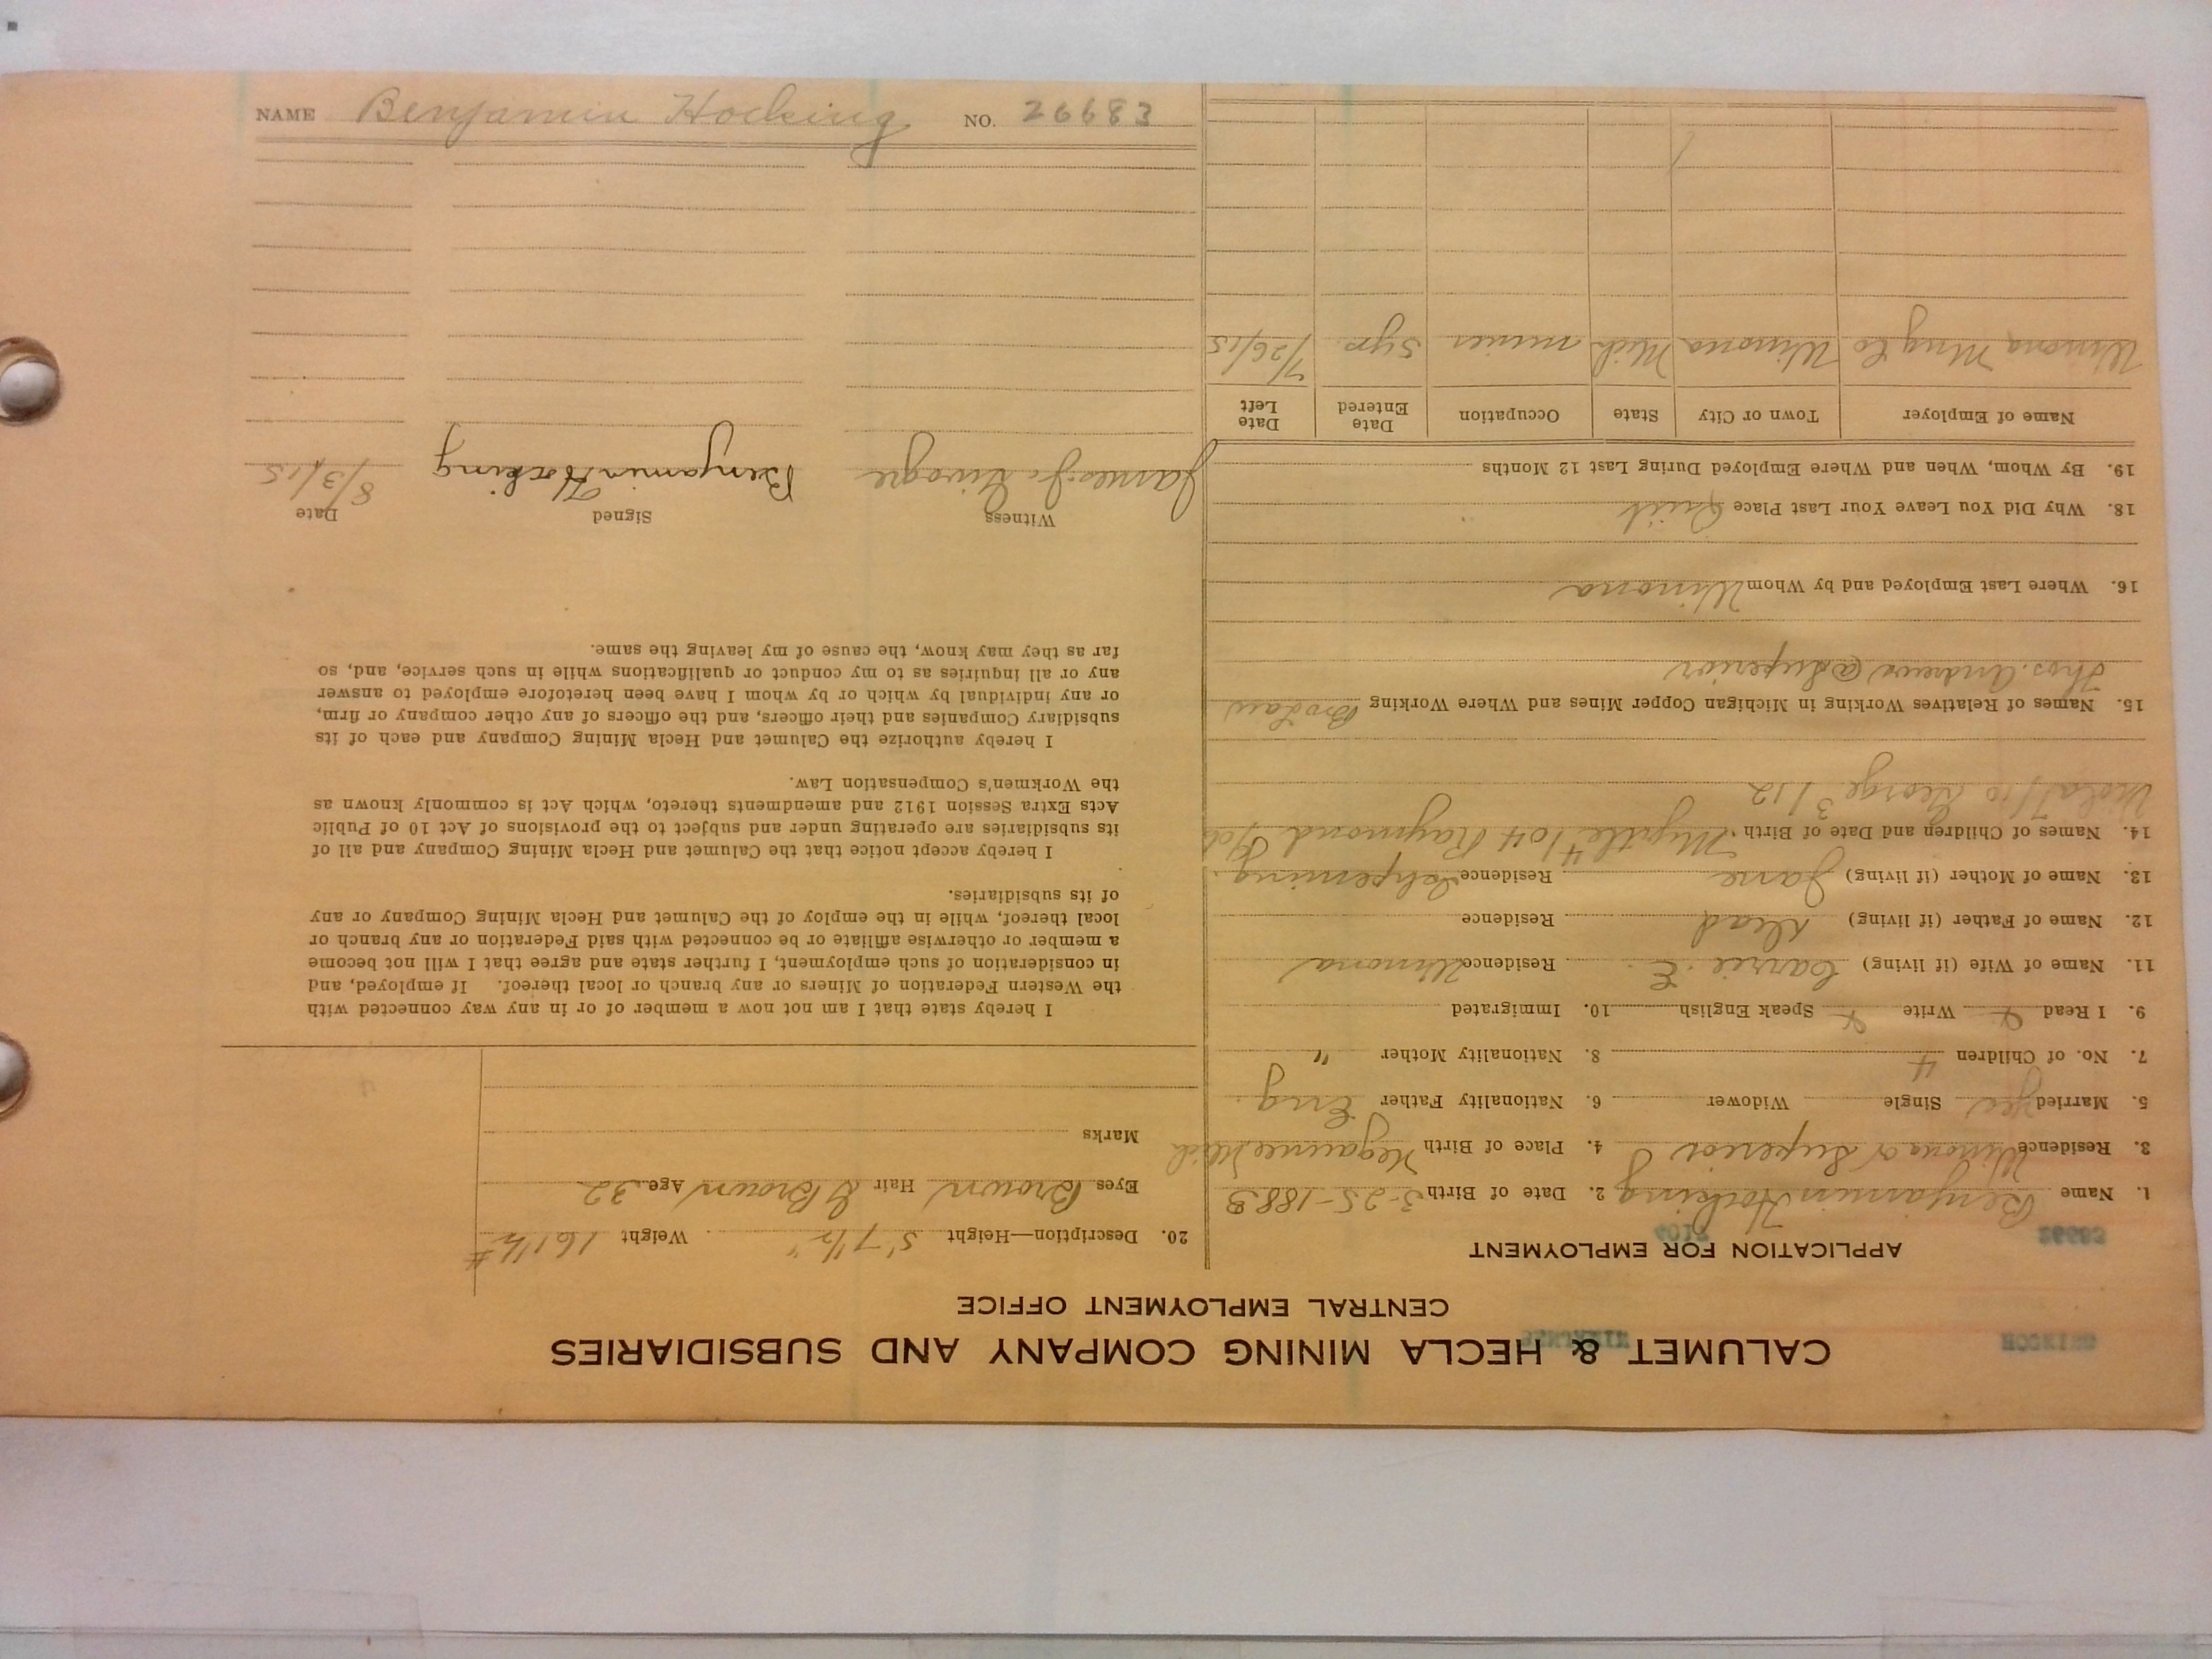 CALUMET & HECLA MINING COMPANY AND SUBSIDIARIES
CENTRAL EMPLOYMENT OFFICE
APPLICATION FOR EMPLOYMENT
1. Name Benjamin Hocking 2. Date of Birth 3-25-1883
3. Residence Winona or Superior 4. Place of Birth Negaunee Mich
5. Married Yes Single Widower 6. Nationality Father Eng.
7. No. of Children 4 8. Nationality Mother "
9. I Read Write Speak English 10. Immigrated
11. Name of Wife (if living) Carrie E. Residence Winona
12. Name of Father (if living) Dead Residence
13. Name of Mother (if living) Jane Residence Ishpeming.
14. Names of Children and Date of Birth Myrtle 4/04 Raymond
7/10 George 3/12
15. Names of Relatives Working in Michigan Copper Mines and Where Working
Thos. Andrews @ Superior
16. Where Last Employed and by Whom Winona
18. Why Did You Leave Your Last Place Quit
19. By Whom, When and Where Employed During Last 12 Months
Name of Employer Town or City State Occupation Date Entered Date Left
Winona Mng Co Winona Mich miner 5 yrs. 7/26/15
20. Description—Height 5' 7 1/2" Weight 161 1/2 #
Eyes Brown Hair D Brown Age 32
Marks
I hereby state that I am not now a member of or in any way connected with
the Western Federation of Miners or any branch or local thereof. If employed, and
in consideration of such employment, I further state and agree that I will not become
a member or otherwise affiliate or be connected with said Federation or any branch or
local thereof, while in the employ of the Calumet and Hecla Mining Company or any
of its subsidiaries.
I hereby accept notice that the Calumet and Hecla Mining Company and all of
its subsidiaries are operating under and subject to the provisions of Act 10 of Public
Acts Extra Session 1912 and amendments thereto, which Act is commonly known as
the Workmen's Compensation Law.
I hereby authorize the Calumet and Hecla Mining Company and each of its
subsidiary Companies and their officers, and the officers of any other company or firm,
or any individual by which or by whom I have been heretofore employed to answer
any or all inquiries as to my conduct or qualifications while in such service, and, so
far as they may know, the cause of my leaving the same.
Witness Signed Date
James J. Benjamin Hocking 8/3/15
NAME Benjamin Hocking NO. 26683